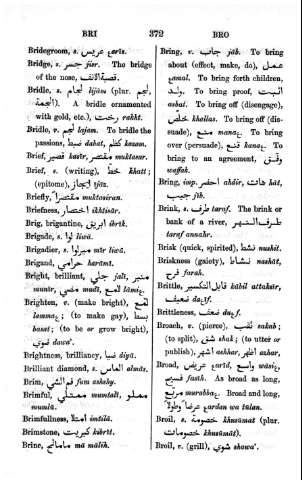 BRI 372 BRO
Bridegroom, s. عريس ɛarîs.
Bridge, s. جسر jisr. The bridge
of the nose, قصبة الانف.
Bridle, s. لجام lijâm (plur. لجم,
الجمة). A bridle ornamented
with gold, etc., رخت rakht.
Bridle, v. لجم lejam. To bridle the
passions, ضبط ḍabat, كظم kaẓam.
Brief, قصير, مختصر mukhtasar.
Brief, s. (writing), خط khatt;
(epitome), إيجاز îjâz.
Briefly, مختصرا mukhtasiran.
Briefness, اختصار ikhtisâr.
Brig, brigantine, ابريق ibrîk.
Brigade, s. لوا liwâ.
Brigadier, s. ميرلوا mîr liwâ.
Brigand, حرامي harâmi.
Bright, brilliant, جلي jali, منير
munîr, مضي mudî, لامع lâmiɛ.
Brighten, v. (make bright), لمع
lemmaɛ; (to make gay), بسط
basat; (to be or grow bright),
ضوي dawa'.
Brightness, brilliancy, ضيا diyâ.
Brilliant diamond, s. الماس almâs.
Brim, فم الشي fum ashshy.
Brimful, ممتلي mumtali, مملو
mumlû.
Brimfullness, امتلا imtilâ.
Brimstone, كبريت kibrît.
Brine, ماء مالح mâ mâlih.
Bring, v. جاب jâb. To bring
about (effect, make, do), عمل
ɛamal. To bring forth children,
ولد. To bring proof, اثبت
asbat. To bring off (disengage),
خلص khallas. To bring off (dis-
suade), منع manaɛ. To bring
over (persuade), قنع kanaɛ. To
bring to an agreement, وفق
waffak.
Bring, imp. احضر ahdir, هات hât,
جيب jîb.
Brink, s. طرف taraf. The brink or
bank of a river, طرف النهر
taraf annahr.
Brisk (quick, spirited), نشيط nashît.
Briskness (gaiety), نشاط nashât,
فرح farah.
Brittle, قابل التكسير kâbil attaksîr,
ضعيف daɛîf.
Brittleness, ضعف duɛf.
Broach, v. (pierce), ثقب sakab;
(to split), شق shak; (to utter or
publish), اشهر ashhar, اظهر azhar.
Broad, عريض ɛarîd, واسع wâsiɛ,
فسيح fasîh. As broad as long,
مربع murabbaɛ. Broad and long,
عرضا وطولا ɛardan wa tûlan.
Broil, s. خصومة khusûmat (plur.
خصومات khusûmât).
Broil, v. (grill), شوي shawa'.